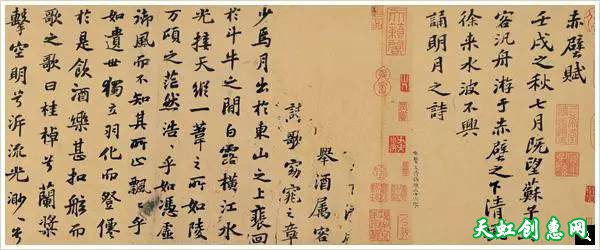 赤壁賦
壬戌之秋七月既望蘇子
客汎舟游于赤壁之下清
徐來水波不興
誦明月之詩
舉酒属客
歌窈窕之章
少焉月出於東山之上裴回
於斗牛之間白露橫江水
光接天縱一葦之所如陵
万頃之茫然浩〻乎如憑虛
御風而不知其所止飄〻乎
如遺世獨立羽化而登僊
於是飲酒樂甚扣舷而
歌之歌曰桂棹兮蘭槳
擊空明兮泝流光渺〻兮
天虹创惠网